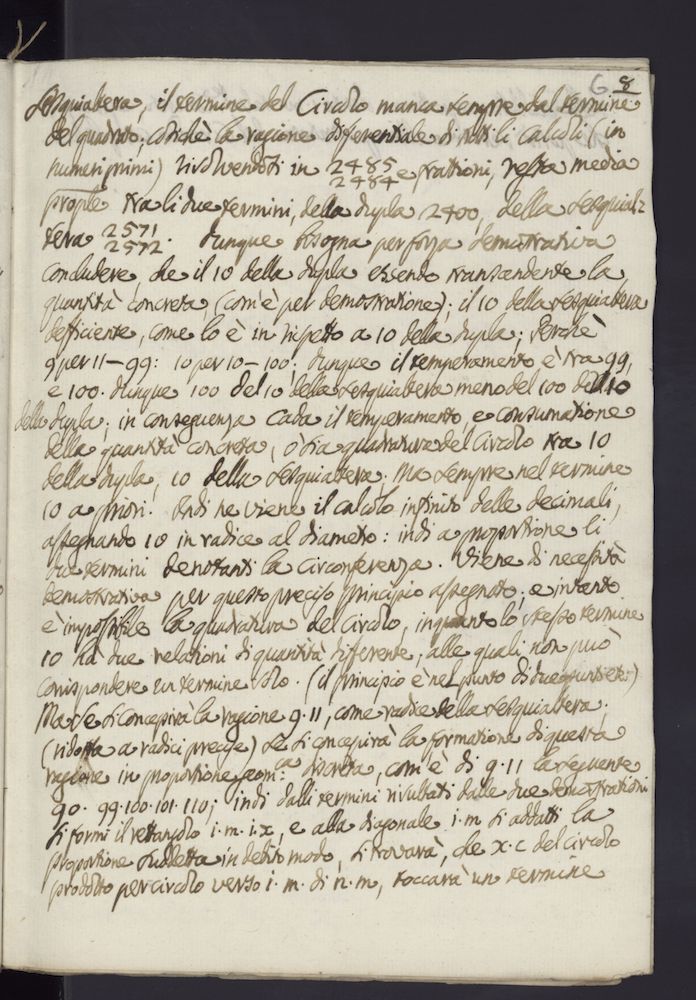 6 8
Sesquialtera, il termine del Circolo manca sempre dal termine
del quadrato; cosichè la ragione differentiale di tutti li calcoli (in
numeri primi) risolvendosi in 2485 2484 e frationi, resta media
prople tra li due termini, della dupla 2400, della sesquial-
tera 2571 2572. Dunque bisogna per forza demostrativa
concludere, che il 10 della dupla essendo transcendente la
quantità concreta, (com'è per demostratione); il 10 della sesquialtera
defficiente, come lo è in rispetto a 10 della dupla; Perchè
9 per 11 - 99: 10 per 10 - 100: dunque il temperamento è tra 99,
e 100. dunque 100 del 10 della sesquialtera meno del 100 del 10
della dupla; in conseguenza cada il temperamento, e consumatione
della quantità concreta, ò sia quadratura del Circolo tra 10
della dupla, 10 della sesquialtera. Ma sempre nel termine
10 a priori. Indi ne viene il calcolo infinito delle decimali,
assegnando 10 in radice al diametro: indi a proportione li
due termini denotanti la circonferenza. Viene di necessità
demostrativa per questo preciso principio assegnato; e intanto
è impossibile la quadratura del Circolo, inquanto lo stesso termine
10 hà due relationi di quantità differente, alle quali non può
corrispondere un termine solo. (il principio è nel punto di due
Ma se si concepirà la ragione 9. 11, come radice della sesquialtera;
(ridotta a radici precise) se si concepirà la formatione di questa
ragione in proportione geom:ca discreta, com'è di 9. 11 la seguente
90. 99. 100. 101. 110; indi dalli termini risultati dalle due demostrationi
si formi il rettangolo i. m. i. x, e alla diagonale i. m si addatti la
proportione suddetta in debito modo, si trovarà, che x. c del circolo
prodotto per circolo verso i. m. di n. m, toccarà un termine